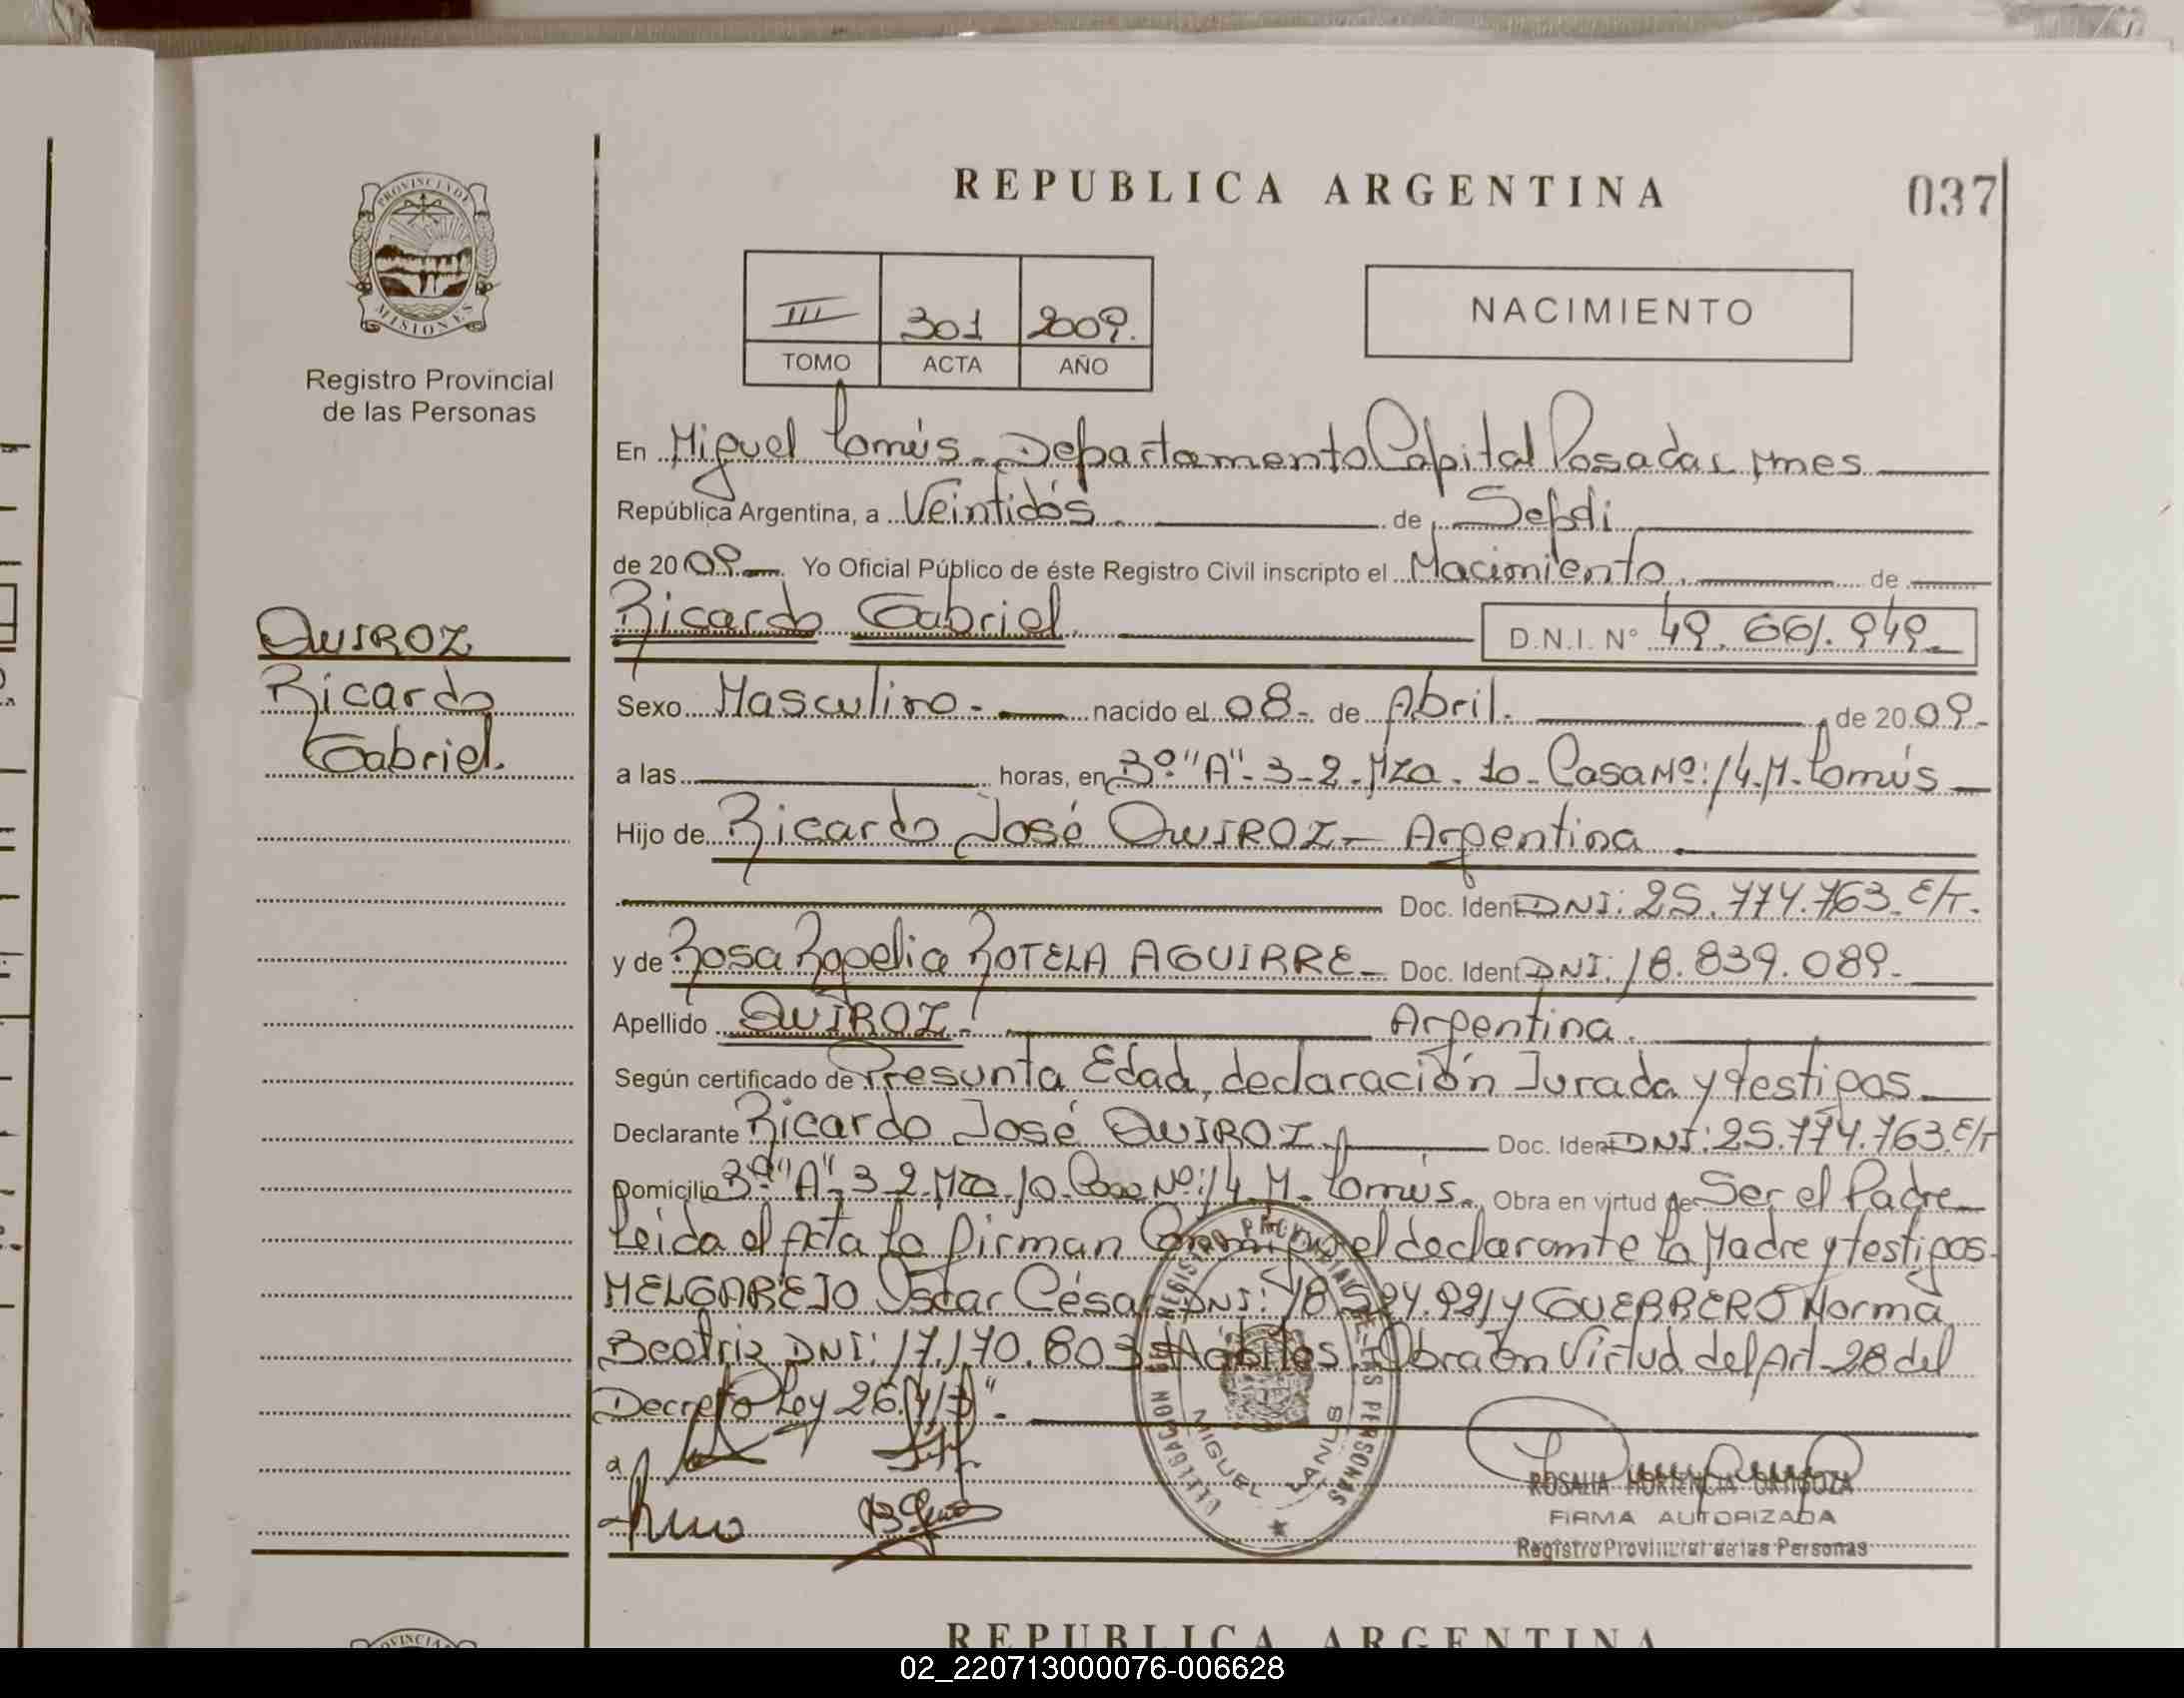 REPUBLICA ARGENTINA
037
PROVINCIA DE
MISIONES
Registro Provincial
de las Personas
III 301 2009.
TOMO ACTA AÑO
NACIMIENTO
En Miguel Lanús - Departamento Capital Posadas, Mnes
República Argentina, a Veintidós de Sep
de 2009 Yo Oficial Público de éste Registro Civil inscripto el Nacimiento. de
Ricardo Gabriel. D.N.I. Nº 49.661.949.
QUIROZ
Ricardo
Gabriel.
Sexo Masculino.- nacido el 08- de Abril. de 2009-
a las horas, en 3º "A"-3-2-Mza-10-Casa Nº:14-M-Lanús
Hijo de Ricardo José QUIROZ- Argentina
Doc. Ident DNI: 25.774.763. E/T.
y de Rosa Rogelia ROTELA AGUIRRE- Doc. Ident DNI: 18.839.089.
Apellido QUIROZ. Argentina.
Según certificado de Presunta Edad, declaración Jurada y testigos
Declarante Ricardo José QUIROZ. Doc. Ident DNI: 25.774.763 E/T
Domicilio 3º "A"-3-2-Mza-10-Casa Nº:14 M-Lanús. Obra en virtud de Ser el Padre
Leida el Acta la firman Conmigo el declarante la Madre y testigos
MELGAREJO Oscar César DNI: 18. y GUERRERO Norma
Beatriz DNI: 17.170.803 Hábiles. Obra en Virtud del Art-28 del
Decreto Ley
REGISTRO PROVINCIAL DE LAS PERSONAS
DELEGACION
MIGUEL LANUS
ROSALIA HORTENCIA ORTIGOZA
FIRMA AUTORIZADA
Registro Provincial de las Personas
REPUBLICA ARGENTINA
02_220713000076-006628